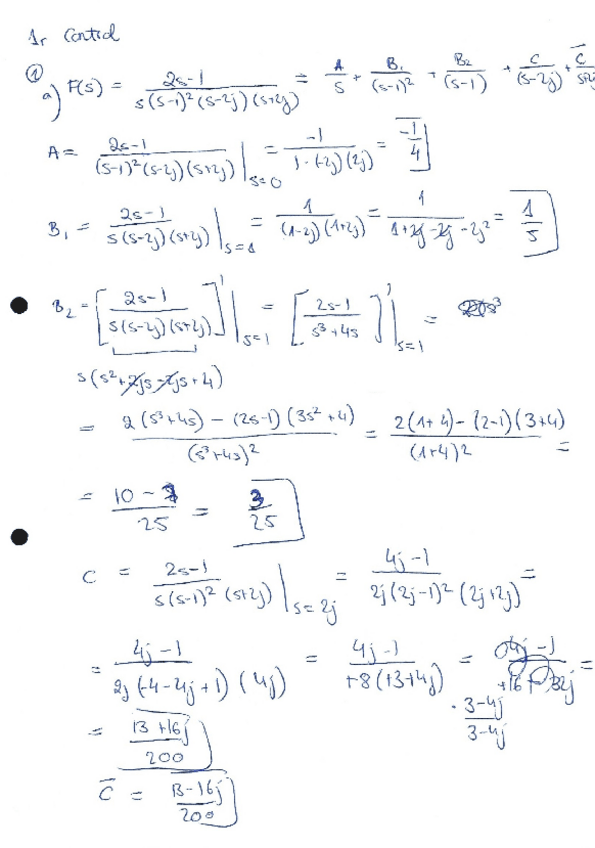 1r Control
① a) F(s) = (2s-1)/(s(s-1)²(s-2j)(s+2j)) = A/s + B₁/(s-1)² + B₂/(s-1) + C/(s-2j) + C̅/(s+2j
A = (2s-1)/((s-1)²(s-2j)(s+2j)) |s=0 = -1/(1·(-2j)(2j)) = -1/4
B₁ = (2s-1)/(s(s-2j)(s+2j)) |s=1 = 1/((1-2j)(1+2j)) = 1/(1+2j-2j-2j²) = 1/5
B₂ = [(2s-1)/(s(s-2j)(s+2j))]' |s=1 = [(2s-1)/(s³+4s)]' |s=1 =
s(s²+2js-2js+4)
= (2(s³+4s) - (2s-1)(3s²+4))/(s³+4s)² = (2(1+4) - (2-1)(3+4))/(1+4)² =
= (10-7)/25 = 3/25
C = (2s-1)/(s(s-1)²(s+2j)) |s=2j = (4j-1)/(2j(2j-1)²(2j+2j)) =
= (4j-1)/(2j(-4-4j+1)(4j)) = (4j-1)/(+8(+3+4j)) = (4j-1)/(+16+32j) =
· (3-4j)/(3-4j)
= (13+16j)/200
C̅ = (13-16j)/200